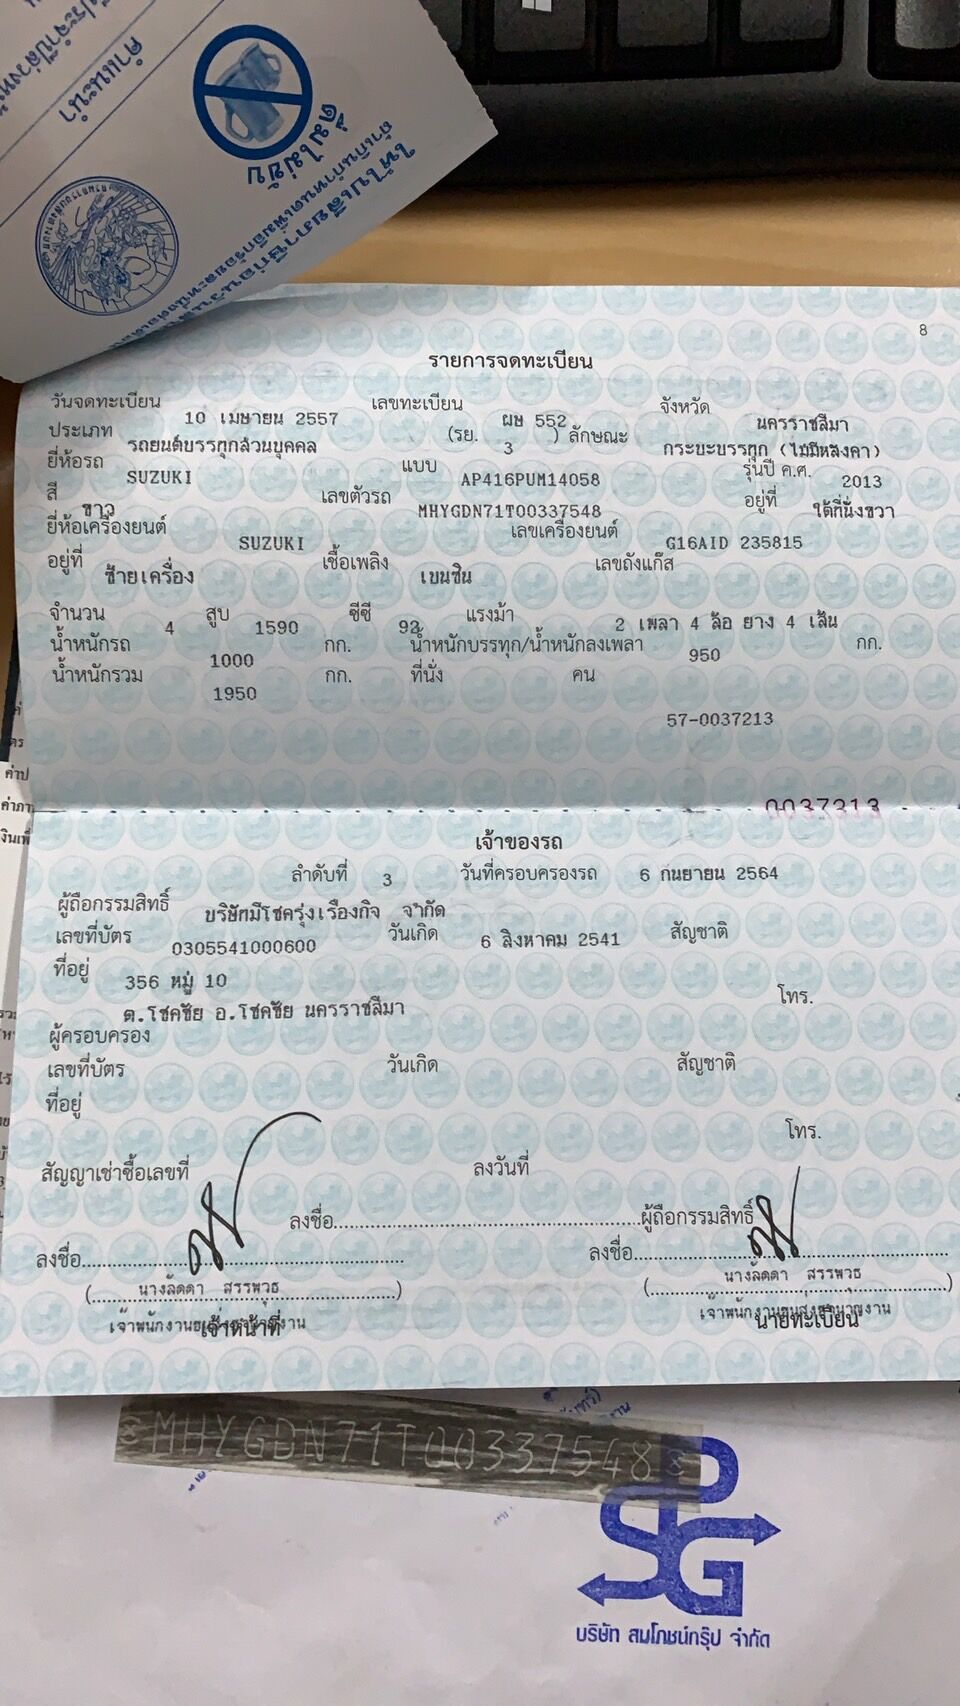 คำแนะนำ
ดื่มไม่ขับ
8
รายการจดทะเบียน
วันจดทะเบียน 10 เมษายน 2557 เลขทะเบียน ผษ 552 จังหวัด นครราชสีมา
ประเภท รถยนต์บรรทุกส่วนบุคคล (รย. 3 ) ลักษณะ กระบะบรรทุก (ไม่มีหลังคา)
ยี่ห้อรถ SUZUKI แบบ AP416PUM14058 รุ่นปี ค.ศ. 2013
สี ขาว เลขตัวรถ MHYGDN71T00337548 อยู่ที่ ใต้ที่นั่งขวา
ยี่ห้อเครื่องยนต์ SUZUKI เลขเครื่องยนต์ G16AID 235815
อยู่ที่ ซ้ายเครื่อง เชื้อเพลิง เบนซิน เลขถังแก๊ส
จำนวน 4 สูบ 1590 ซีซี 92 แรงม้า 2 เพลา 4 ล้อ ยาง 4 เส้น
น้ำหนักรถ 1000 กก. น้ำหนักบรรทุก/น้ำหนักลงเพลา 950 กก.
น้ำหนักรวม 1950 กก. ที่นั่ง คน
57-0037213
0037313
เจ้าของรถ
ลำดับที่ 3 วันที่ครอบครองรถ 6 กันยายน 2564
ผู้ถือกรรมสิทธิ์ บริษัทมีโชครุ่งเรืองกิจ จำกัด
เลขที่บัตร 0305541000600 วันเกิด 6 สิงหาคม 2541 สัญชาติ
ที่อยู่ 356 หมู่ 10
ต.โชคชัย อ.โชคชัย นครราชสีมา โทร.
ผู้ครอบครอง
เลขที่บัตร วันเกิด สัญชาติ
ที่อยู่
โทร.
สัญญาเช่าซื้อเลขที่ ลงวันที่
ลงชื่อ ผู้ถือกรรมสิทธิ์
ลงชื่อ ลงชื่อ
( นางลัดดา สรรพวุธ ) ( นางลัดดา สรรพวุธ )
เจ้าหน้าที่ นายทะเบียน
MHYGDN71T00337548
SPG
บริษัท สมโภชน์กรุ๊ป จำกัด